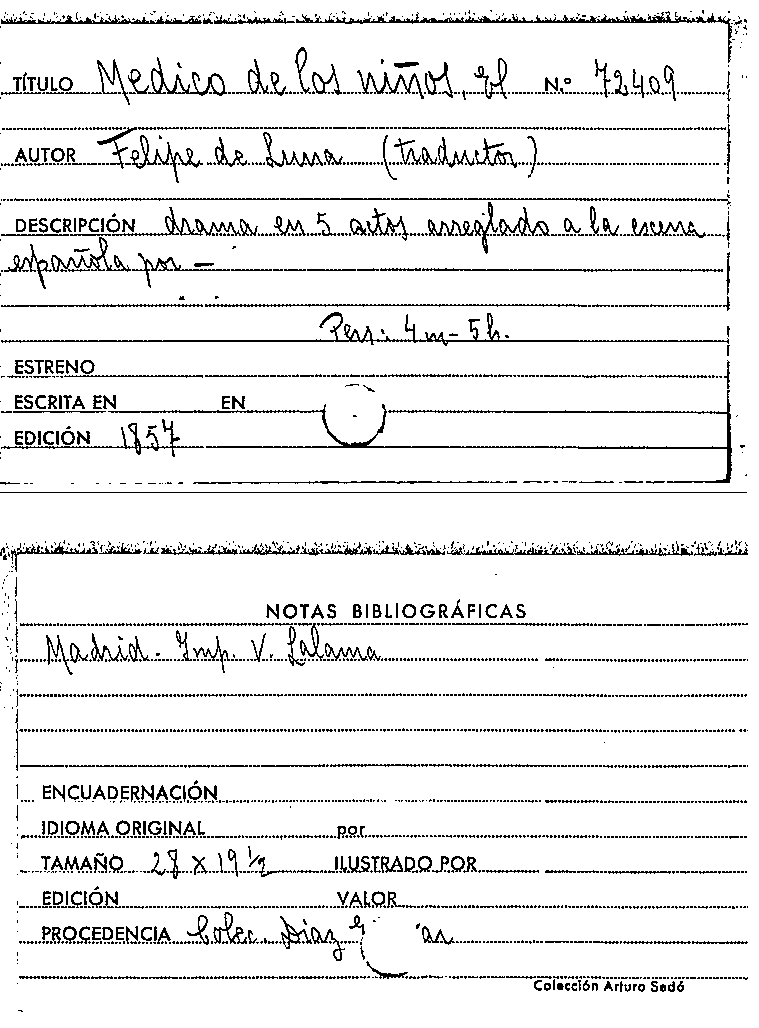 TÍTULO Medico de los niños, El N.º 72409
AUTOR Felipe de Luna (traductor)
DESCRIPCIÓN drama en 5 actos arreglado a la escena
española por —
Pers: 4 m - 5 h.
ESTRENO
ESCRITA EN EN
EDICIÓN 1857
NOTAS BIBLIOGRÁFICAS
Madrid - Imp. V. Lalama
ENCUADERNACIÓN
IDIOMA ORIGINAL por
TAMAÑO 28 x 19 ½ ILUSTRADO POR
EDICIÓN VALOR
PROCEDENCIA Colec. Diaz
Colección Arturo Sedó